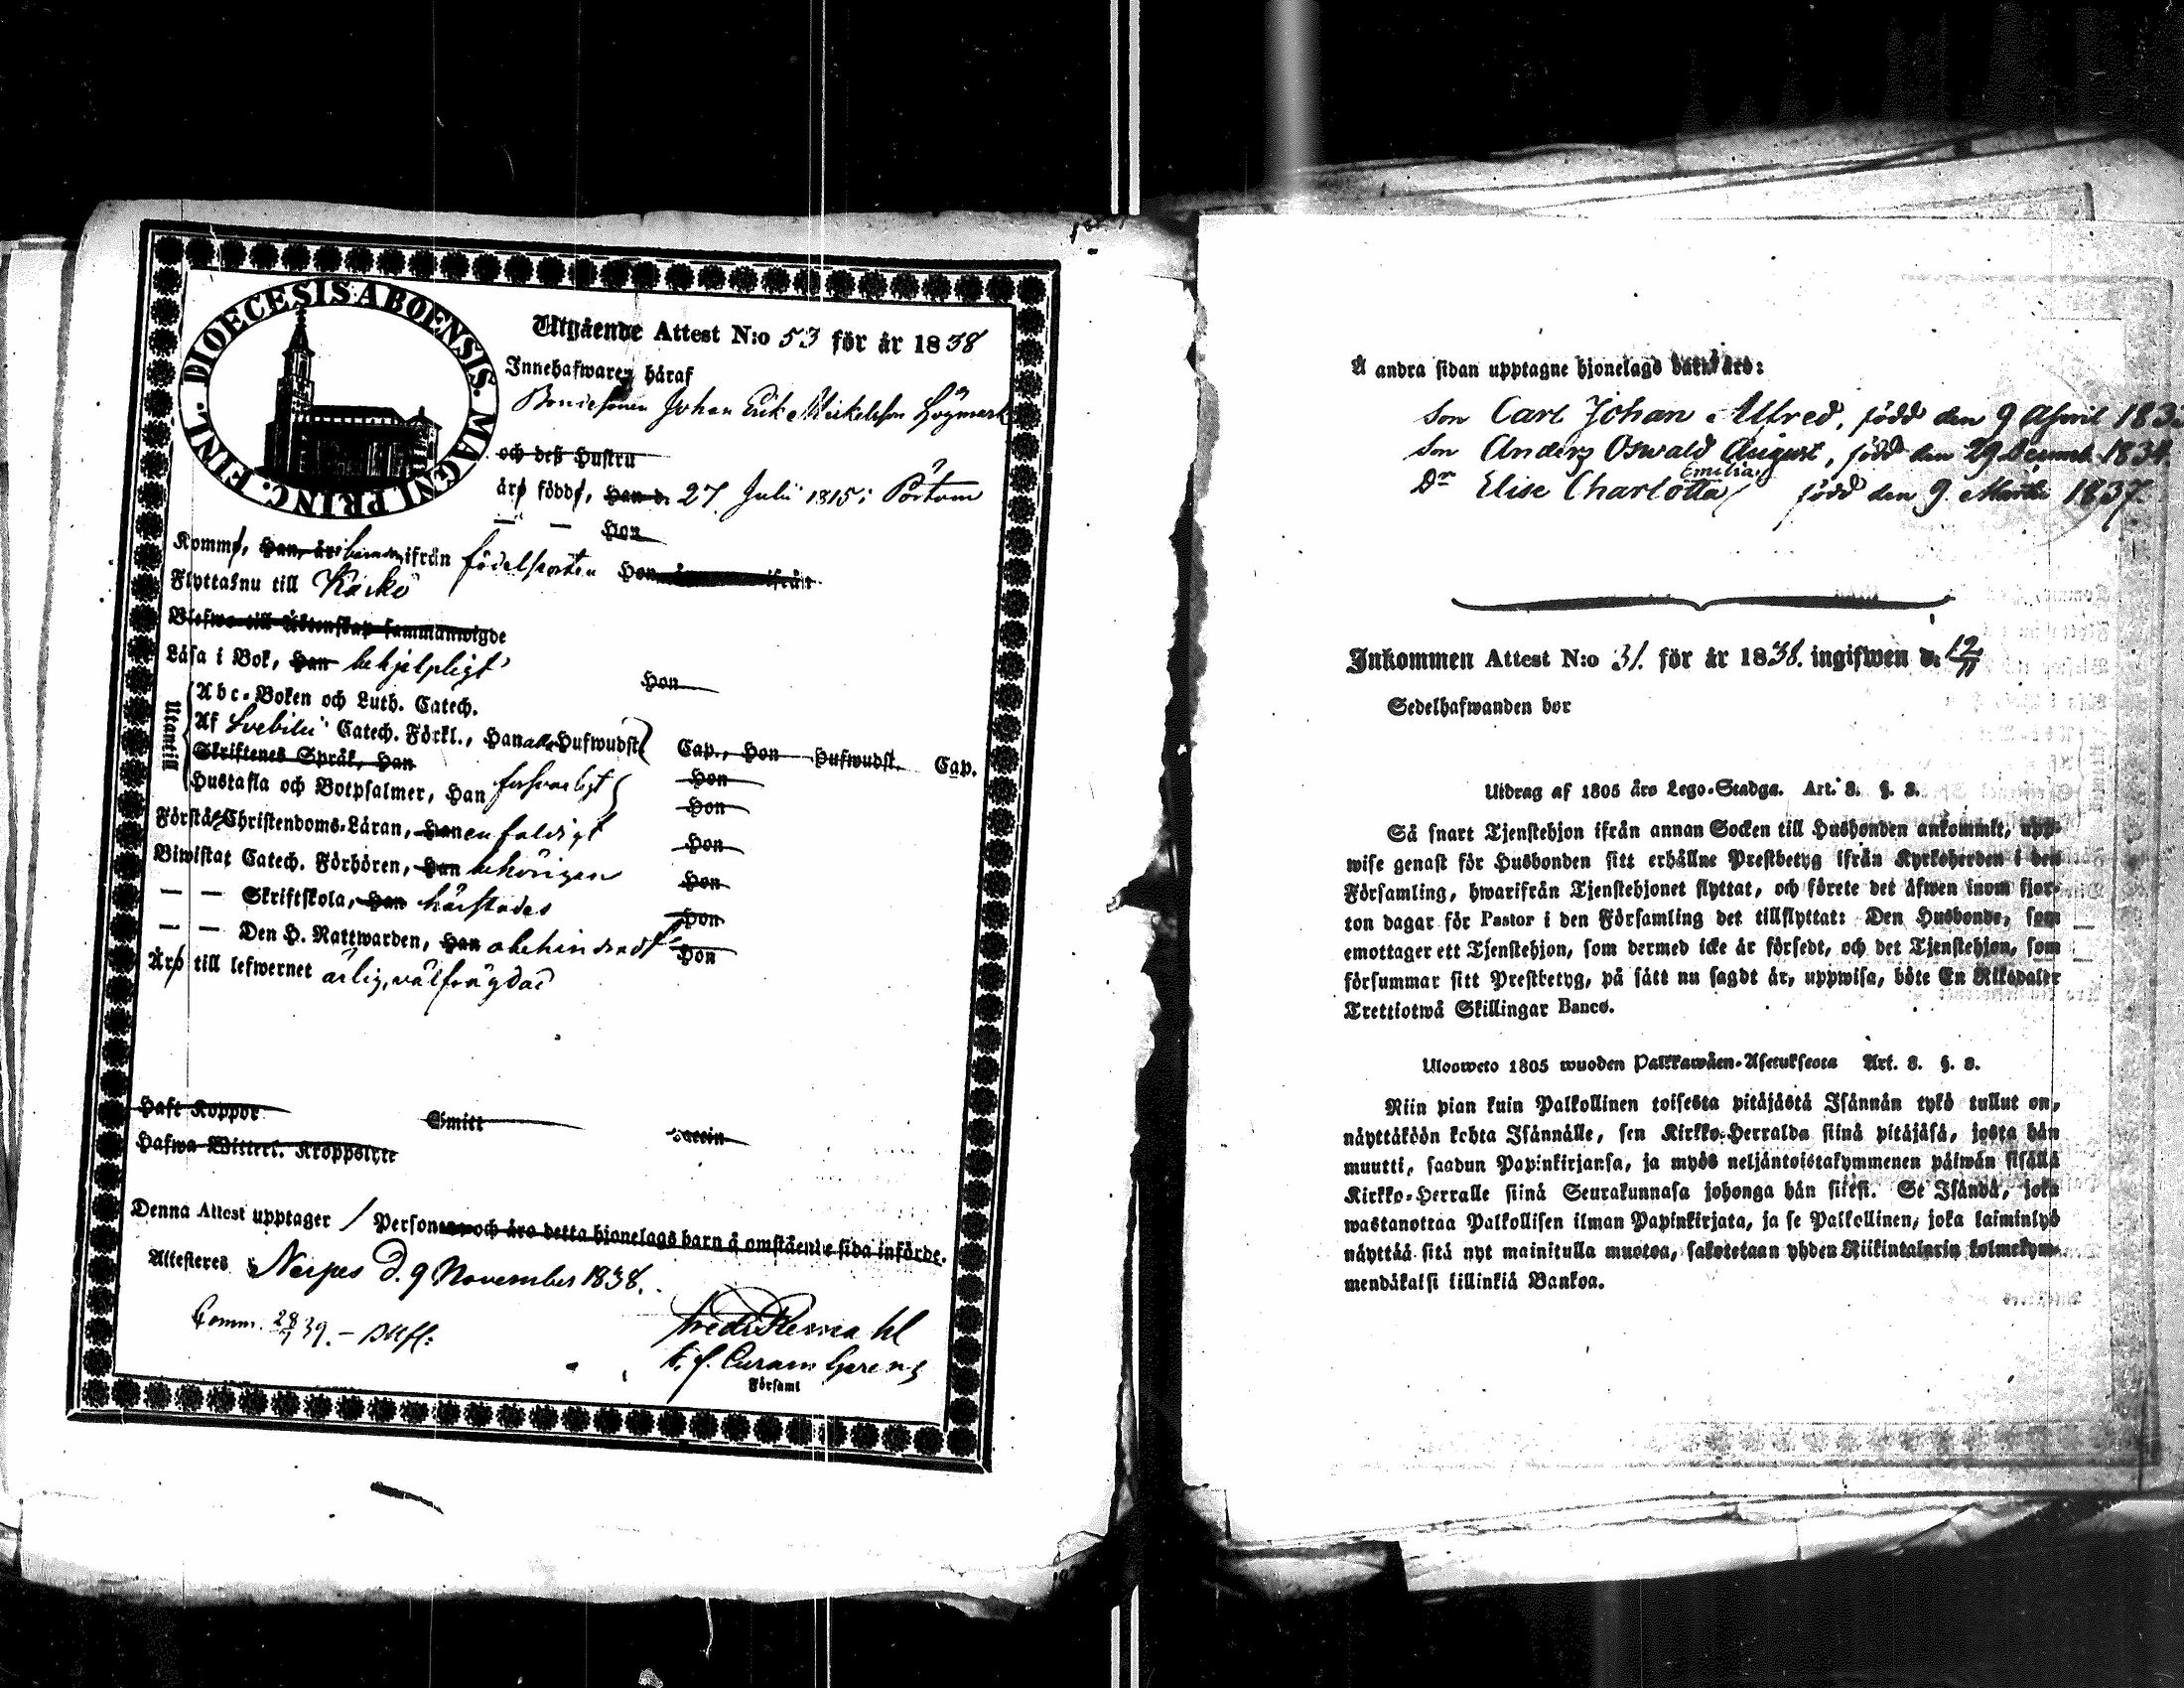 DIOECESIS ABOENSIS. MAGNI PRINC. FINL.
Utgående Attest N:o 53 för år 1838
Innehafwaren häraf
Bondesonen Johan Erik Mickelsson Högmark
och deß Hustru
äro födde, Han d. 27 Julii 1815 i Pörtom
— — Hon
Komme, Han, är ifrån födelseorten Hon ifrån
Flyttas nu till Kaskö
Blefwo till Äktenskap sammanwigde
Läsa i Bok, Han behjelpligt Hon
Utantill
Abc-Boken och Luth. Catech.
Af Svebilii Catech. Förkl., Han alla Hufwudst. Cap., Hon Hufwudst. Cap.
Skriftenes Språk, Han Hon
Hustafla och Botpsalmer, Han försvarligt Hon
Förstå Christendoms-Läran, Han enfaldigt Hon
Biwistat Catech. Förhören, Han behörigen Hon
— — Skriftskola, Han härstädes Hon
— — Den H. Nattwarden, Han obehindradt Hon
Äro till lefwernet ärlig, välfrägdad
Haft Koppor Smitt Vaccin
Hafwa Witterl. Kroppslyte
Denna Attest upptager 1 Personer och äro detta hjonelags barn å omstående sida införde.
Attesteres Nerpes d. 9 November 1838.
Comm. 28/7 39.
t. f. Curam Gerens
Förſaml
Å andra sidan upptagne hjonelags barn äro:
Son Carl Johan Alfred, född den 9 April 183
Son Anders Oswald August, född den 29 Decemb. 1834.
Emilia
Dr Elise Charlotta född den 9 Martii 1837.
Inkommen Attest N:o 31. för år 1838. ingifwen d. 12/11
Sedelhafwanden bor
Utdrag af 1805 års Lego-Stadga. Art. 8. §. 8.
Så snart Tjenstehjon ifrån annan Socken till Husbonden ankommit, upp-
wise genast för Husbonden sitt erhållne Prestbetyg ifrån Kyrkoherden i den
Församling, hwarifrån Tjenstehjonet flyttat, och förete det äfwen inom fjor-
ton dagar för Pastor i den Församling det tillflyttat: Den Husbonde, som
emottager ett Tjenstehjon, som dermed icke är försedt, och det Tjenstehjon, som
försummar sitt Prestbetyg, på sätt nu sagdt är, uppwisa, böte En Riksdaler
Trettiotwå Skillingar Banco.
Uloswето 1805 wuoden Palkkawäen-Asetuksesta Art. 8. §. 8.
Niin pian kuin Palkollinen toisesta pitäjästä Isännän tykö tullut on,
näyttäköön kohta Isännälle, sen Kirkko-Herralda siinä pitäjäsä, josta hän
muutti, saadun Papinkirjansa, ja myös neljäntoistakymmenen päiwän sisällä
Kirkko-Herralle siinä Seurakunnasa johonga hän siirsi. Se Isändä, joka
wastanottaa Palkollisen ilman Papinkirjata, ja se Palkollinen, joka laiminlyö
näyttää sitä nyt mainitulla muotoa, sakotetaan yhden Riikintalarin kolmekym-
mendäkaksi killinkiä Bankoa.